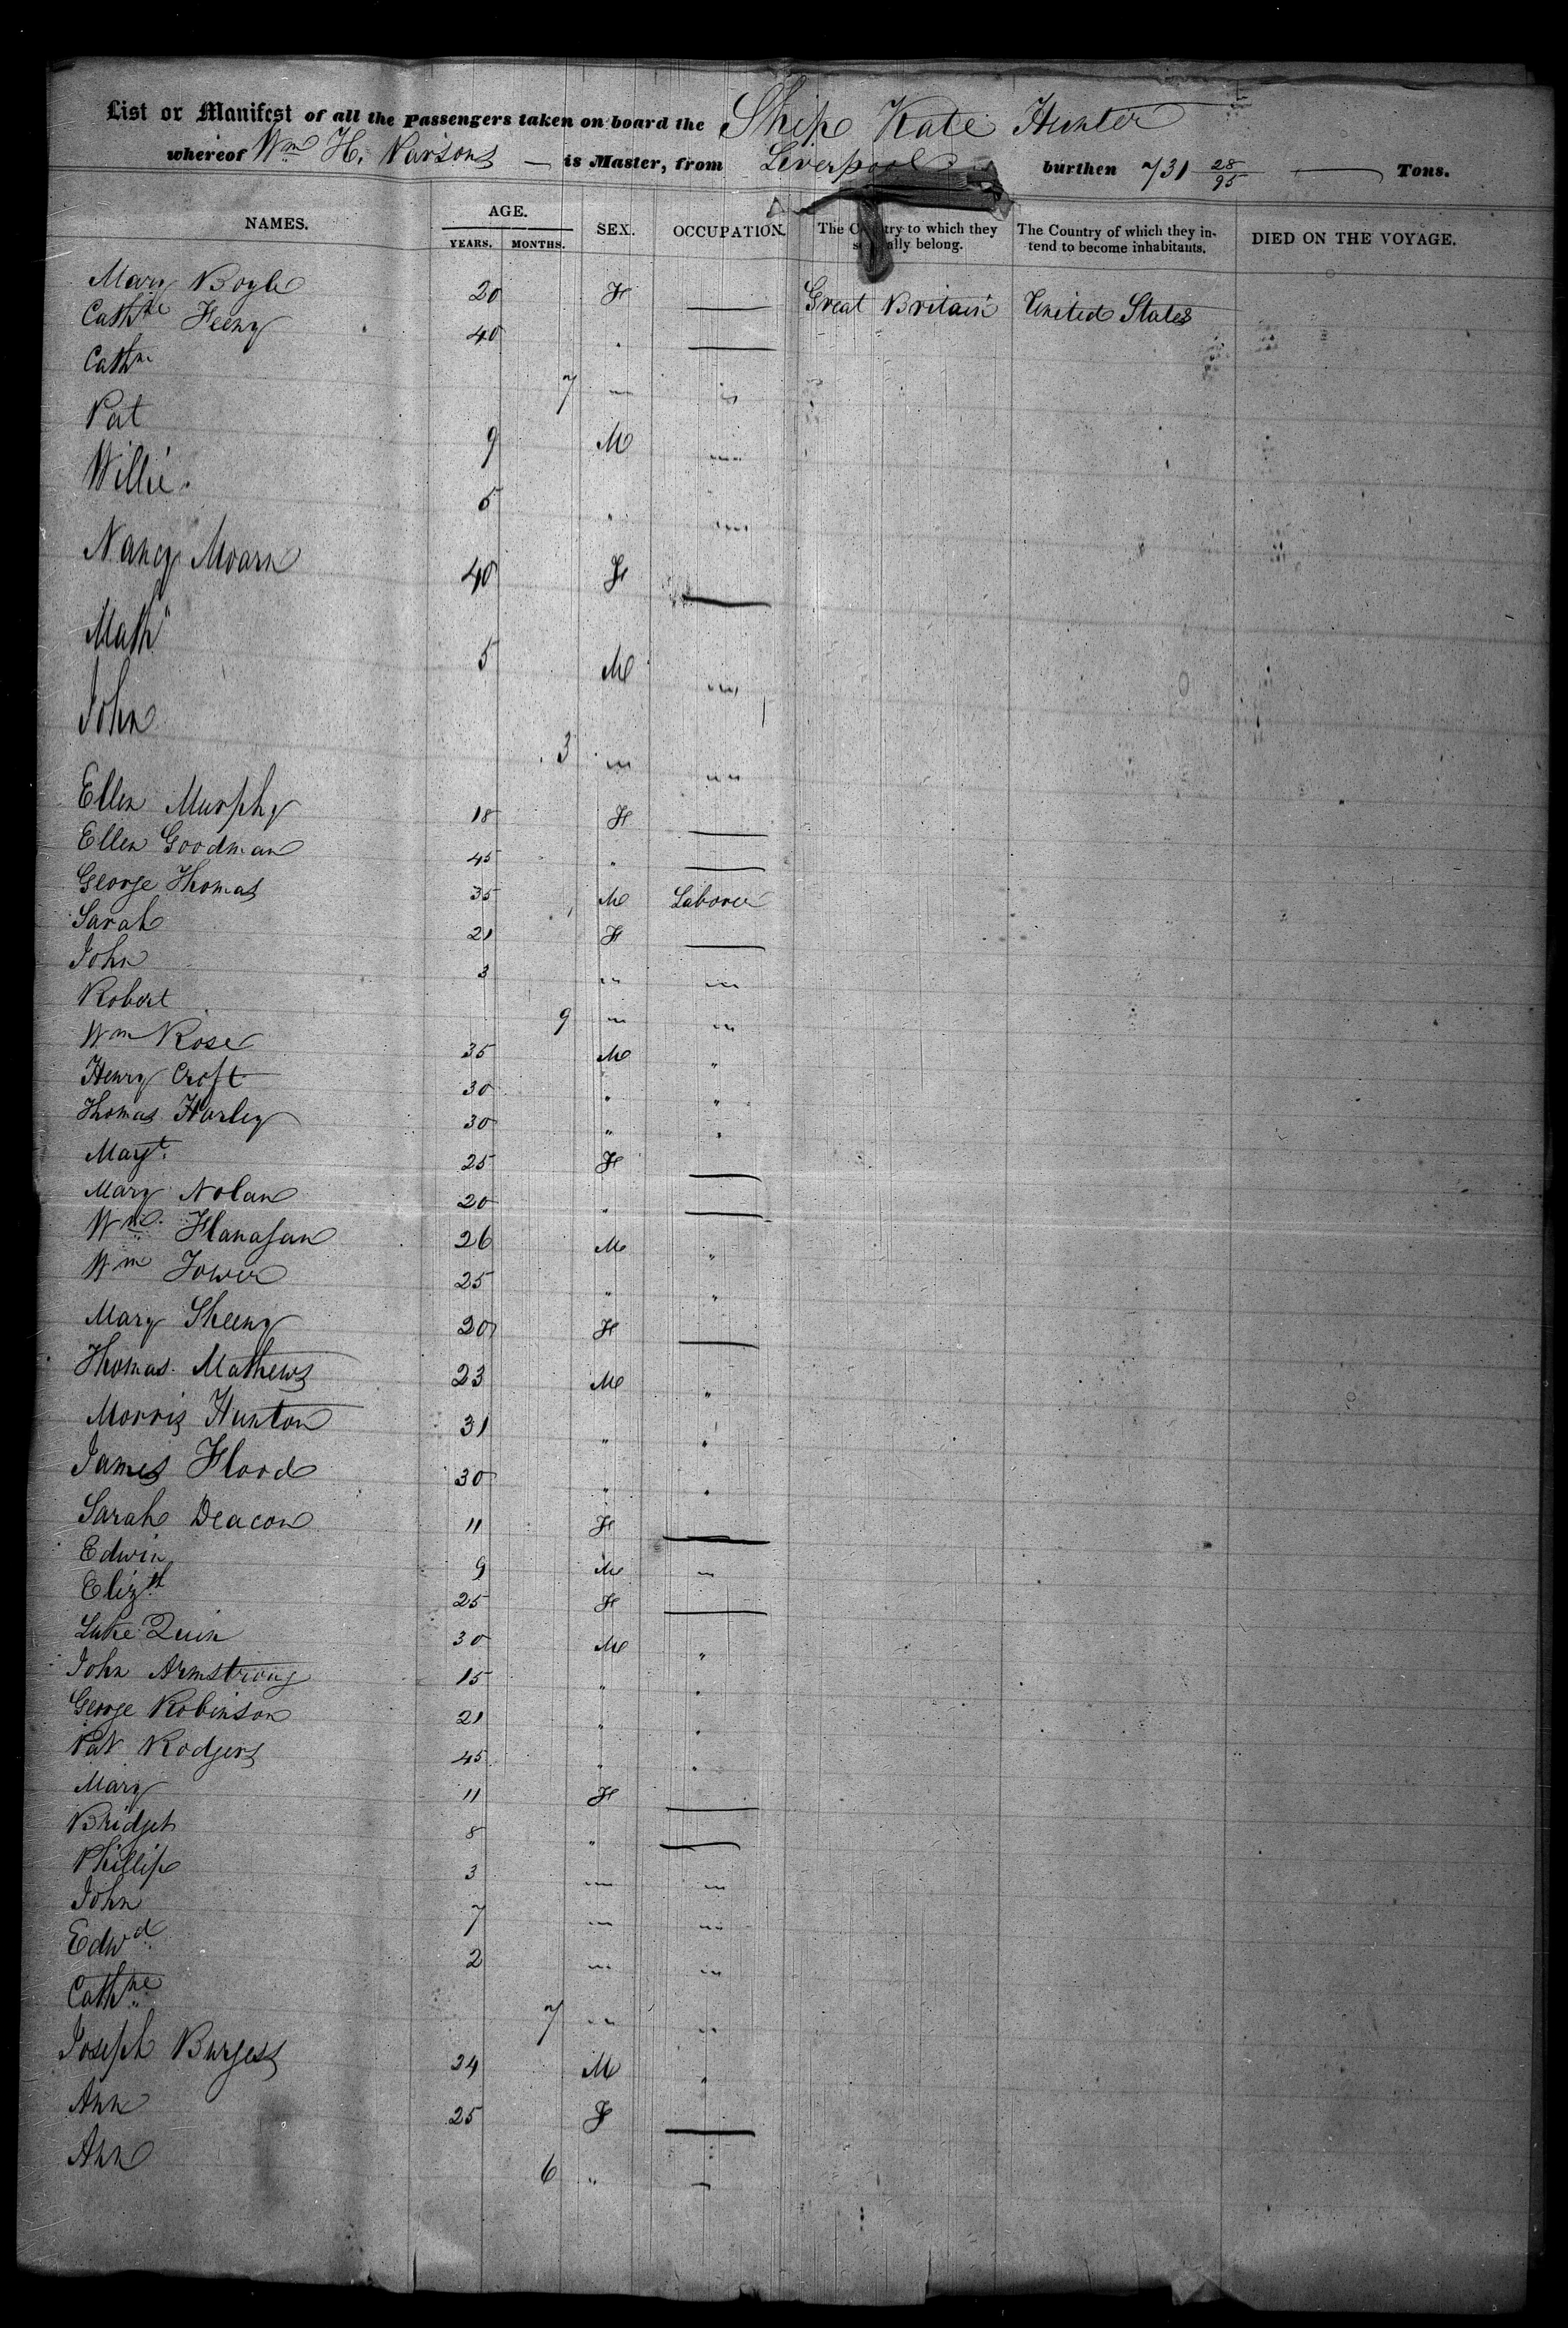 List or Manifest of all the Passengers taken on board the Ship Kate Hunter
whereof Wm H. Parsons — is Master, from Liverpool burthen 731 28/95 — Tons.
NAMES. AGE. YEARS. MONTHS. SEX. OCCUPATION. The Country to which they severally belong. The Country of which they intend to become inhabitants. DIED ON THE VOYAGE.
Mary Boyle 20 F — Great Britain United States
Cathne Feeny 40 " —
Cathne 7 " "
Pat 9 M "
Willie 5 " "
Nancy Moarn 40 F —
Math" 5 M "
John 3 " "
Ellen Murphy 18 F —
Ellen Goodman 45 " —
George Thomas 35 M Laborer
Sarah 21 F —
John 3 " "
Robert 9 " "
Wm Rose 35 M "
Henry Croft 30 " "
Thomas Harley 30 " "
Margt. 25 F —
Mary Nolan 20 " —
Wm. Flanagan 26 M "
Wm Tower 25 " "
Mary Sheeny 20 F —
Thomas Mathews 23 M "
Morris Hunton 31 " "
James Flood 30 " "
Sarah Deacon 11 F —
Edwin 9 M "
Elizth 25 F —
Luke Quin 30 M "
John Armstrong 15 " "
George Robinson 21 " "
Pat Rodgers 45 " "
Mary 11 F —
Bridget 8 " —
Phillip 3 " "
John 7 " "
Edwd 2 " "
Cathne 7 " "
Joseph Burgess 24 M "
Ann 25 F —
Ann 6 " —